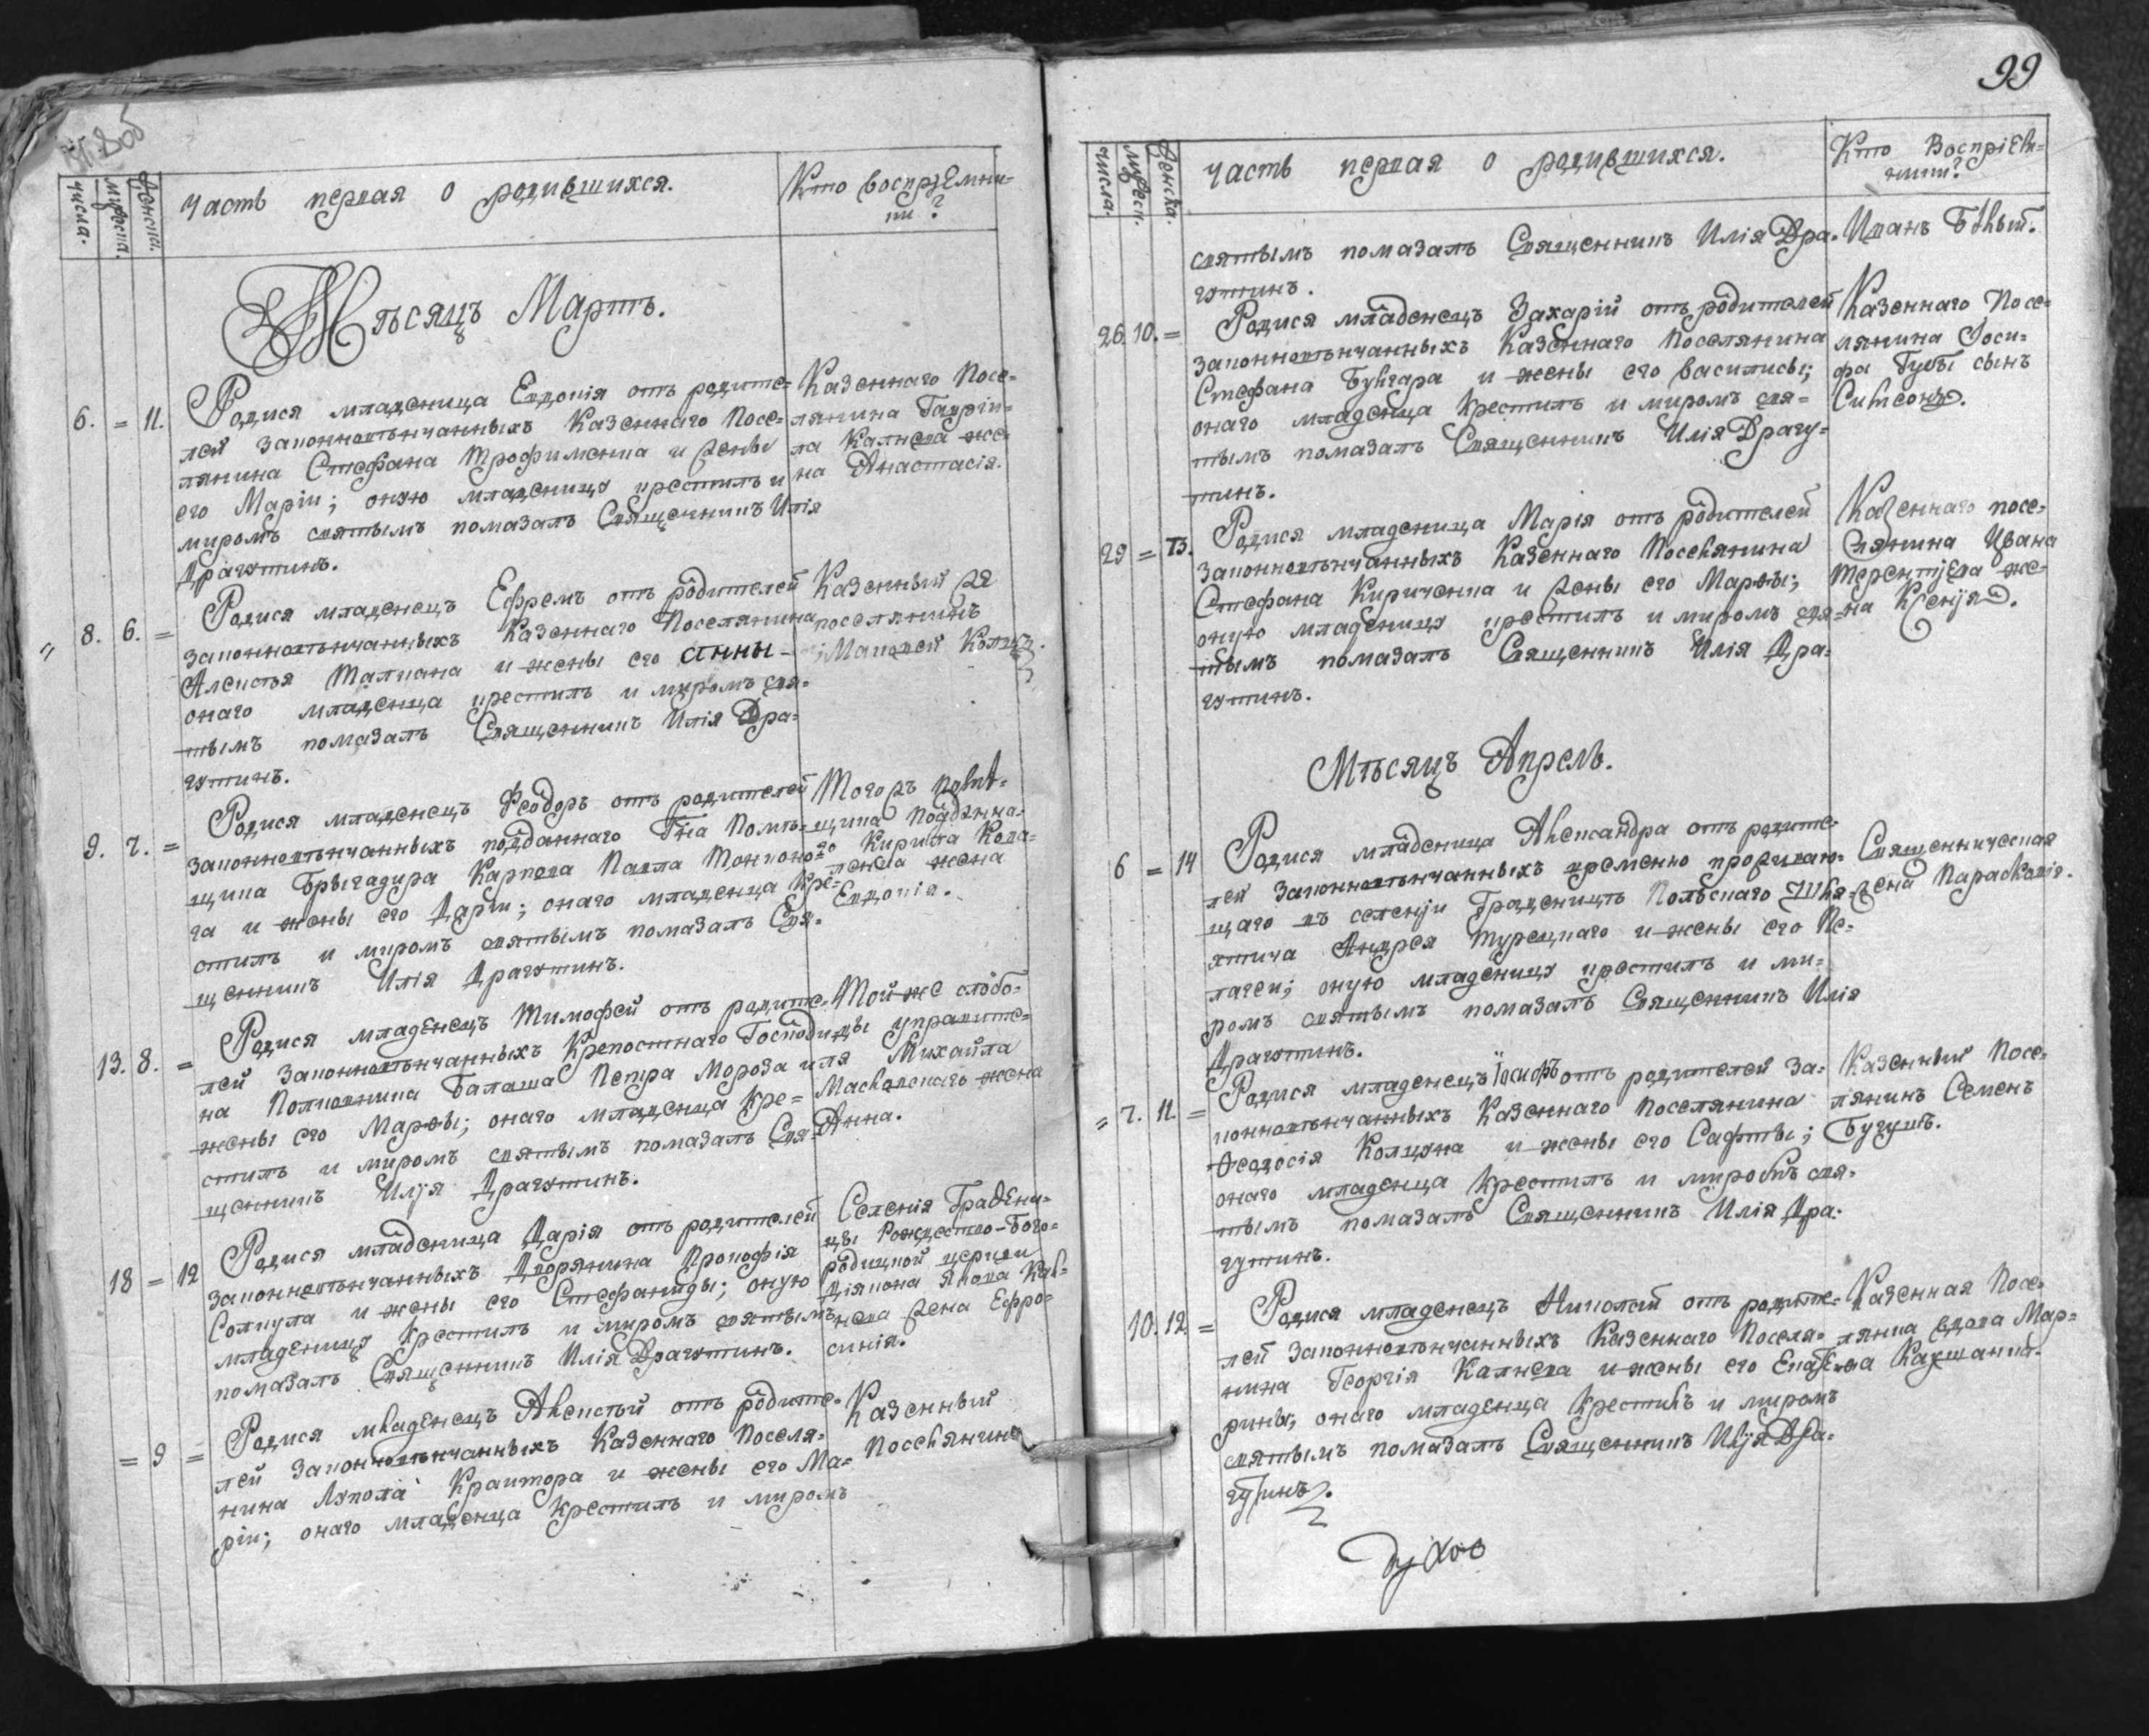 числа.
мужеска.
женска.
Часть первая о родившихся.
Кто воспрᲂемни-
ки?
Мѣсяцъ Мартъ.
6. = 11.
Родися младеница Евдокія отъ родите-
лей законновѣнчанныхъ Казеннаго Посе-
лянина Стефана Трофименка и жены
его Маріи; оную младеницу крестилъ и
миромъ святымъ помазалъ Священникъ Илія
Драгутинъ.
Казеннаго Посе-
лянина Гавріи-
ла Калнева же-
на Анастасія.
8. 6. =
Родися младенецъ Ефремъ отъ родителей
законновѣнчанныхъ Казеннаго Поселянина
Алексѣя Талпана и жены его Анны
онаго младенца крестилъ и миромъ свя-
тымъ помазалъ Священникъ Илія Дра-
гутинъ.
Казенный же
поселянинъ
Матвей
9. 7. =
Родися младенецъ Феодоръ отъ родителей
законновѣнчанныхъ подданнаго Гна Помѣ-
щика Брыгадира Карпова Павла Тонконо-
га и жены его Дарїи; онаго младенца кре-
стилъ и миромъ святымъ помазалъ Свя-
щенникъ Илія Драгутинъ.
Того жъ помѣ-
щика подданна-
го Кирила Кова-
ленка жена
Евдокія.
13. 8. =
Родися младенецъ Тимофей отъ родите-
лей законновѣнчанныхъ Крепостнаго Господи-
на Полковника Балаша Петра Мороза и
жены его Марѳы; онаго младенца кре-
стилъ и миромъ святымъ помазалъ Свя-
щенникъ Илїя Драгутинъ.
Той же слобо-
ды управите-
ля Михайла
жена
Анна.
18 = 12
Родися младеница Дарія отъ родителей
законновѣнчанныхъ Дворянина Прокофія
Солкула и жены его Стефаниды; оную
младеницу крестилъ и миромъ святымъ
помазалъ Священникъ Илія Драгутинъ.
Селенія Градени-
цы Рождество-Бого-
родицкой церкви
Діякона Якова Кал-
нева жена Ефро-
синія.
= 9 =
Родися младенецъ Алексѣй отъ родите-
лей законновѣнчанныхъ Казеннаго Поселя-
нина Лупола Краитора и жены его Ма-
ріи; онаго младенца крестилъ и миромъ
Казенный
Поселянинъ
99
числа.
мужеск.
женска.
Часть первая о родившихся.
Кто Воспріем-
ники?
святымъ помазалъ Священникъ Илія Дра-
гутинъ.
Иванъ Бѣлый.
26. 10. =
Родися младенецъ Захарій отъ родителей
законновѣнчанныхъ Казеннаго Поселянина
Стефана Булгара и жены его Василисы;
онаго младенца крестилъ и миромъ свя-
тымъ помазалъ Священникъ Илія Драгу-
тинъ.
Казеннаго Посе-
лянина Іоси-
фа Губы сынъ
Симеонъ.
29 = 13.
Родися младеница Марія отъ родителей
законновѣнчанныхъ Казеннаго Поселянина
Стефана Кириченка и жены его Марѳы;
оную младеницу крестилъ и миромъ свя-
тымъ помазалъ Священникъ Илія Дра-
гутинъ.
Казеннаго посе-
лянина Ивана
Терентїева же-
на Ксенїя.
Мѣсяцъ Апрель.
6 = 14
Родися младеница Александра отъ родите-
лей законновѣнчанныхъ временно проживаю-
щаго въ селенїи Граденицѣ Польскаго Шля-
хтича Андрея Турецкаго и жены его Пе-
лагеи; оную младеницу крестилъ и ми-
ромъ святымъ помазалъ Священникъ Илія
Драгутинъ.
Священническая
жена Параскевія.
7. 11. =
Родися младенецъ Іосифъ отъ родителей за-
конновѣнчанныхъ Казеннаго Поселянина
Ѳеодосія Колцуна и жены его Сафты;
онаго младенца крестилъ и миромъ свя-
тымъ помазалъ Священникъ Илія Дра-
гутинъ.
Казенный Посе-
лянинъ Семенъ
Бугутъ.
10. 12 =
Родися младенецъ Николай отъ родите-
лей законновѣнчанныхъ Казеннаго Поселя-
нина Георгія Калнева и жены его Екате-
рины; онаго младенца крестилъ и миромъ
святымъ помазалъ Священникъ Илїя Дра-
гутинъ.
Казенная Посе-
лянка вдова Мар-